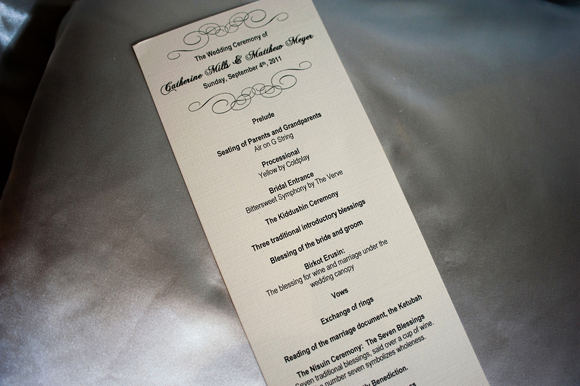 The Wedding Ceremony of
Catherine Mills & Matthew Meyer
Sunday, September 4th, 2011
Prelude
Seating of Parents and Grandparents
Air on G String
Processional
Yellow by Coldplay
Bridal Entrance
Bittersweet Symphony by The Verve
The Kiddushin Ceremony
Three traditional introductory blessings
Blessing of the bride and groom
Birkot Erusin:
The blessing for wine and marriage under the
wedding canopy
Vows
Exchange of rings
Reading of the marriage document, the Ketubah
The Nisuin Ceremony: The Seven Blessings
Seven traditional blessings, said over a cup of wine.
number seven symbolizes wholeness.
Benediction.